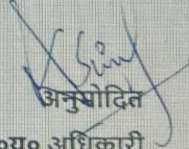 अनुमोदित
०यु० अधिकारी